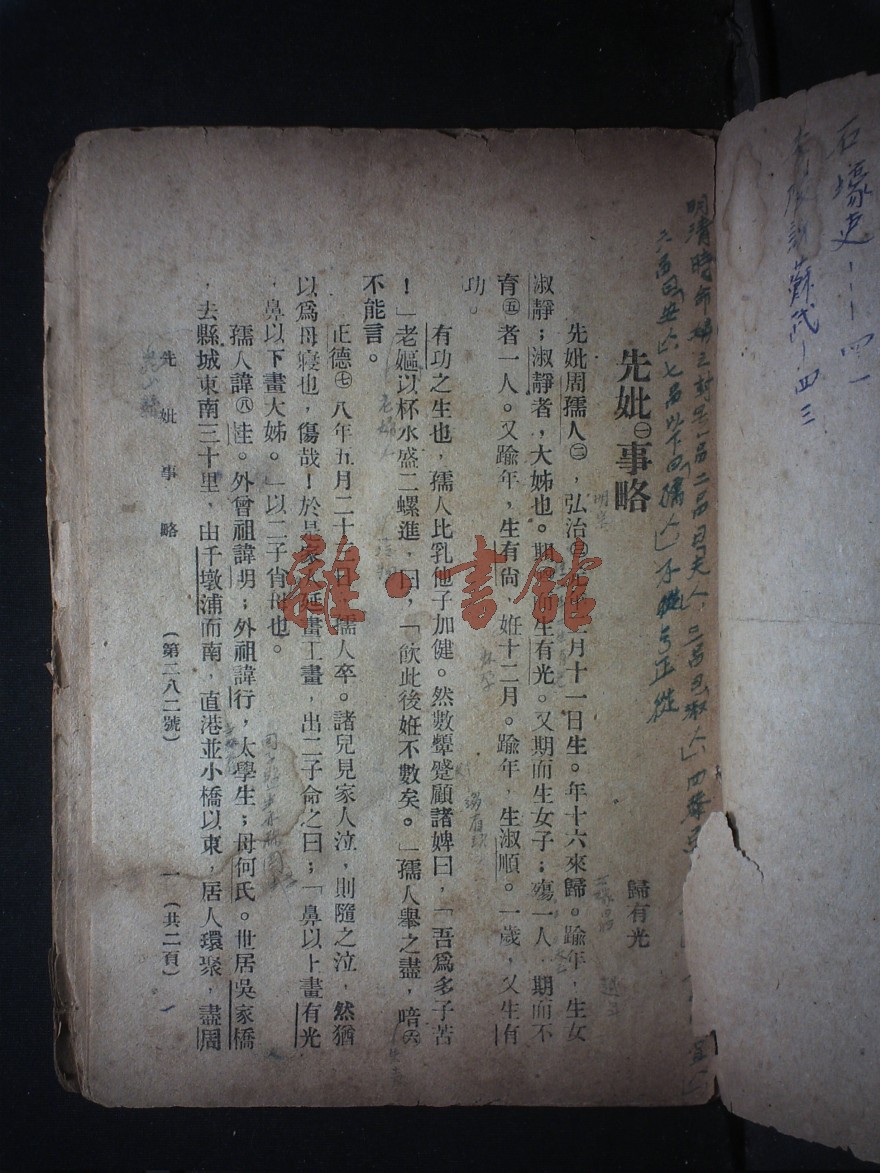 石壕吏——四一
蘇武—四三
明清時命婦之封号一品二品曰夫人,三品曰淑人,四品
七品以下曰孺人
先妣㊀事略
歸有光
先妣周孺人㊁,弘治㊂ 月十一日生。年十六來歸。踰年,生女
淑靜;淑靜者,大姊也。期而生有光。又期而生女子;殤一人,期而不
育㊄者一人。又踰年,生有尙,妊十二月。踰年,生淑順。一歲,又生有
功。
有功之生也,孺人比乳他子加健。然數顰蹙顧諸婢曰,「吾爲多子苦
!」老嫗以杯水盛二螺進,曰,「飲此後妊不數矣。」孺人舉之盡,喑㊅
不能言。
正德㊆八年五月二十三日,孺人卒。諸兒見家人泣,則隨之泣,然猶
以爲母寢也,傷哉!於是家人延畫工畫,出二子命之曰;「鼻以上畫有光
,鼻以下畫大姊。」以二子肖母也。
孺人諱㊇桂。外曾祖諱明;外祖諱行,太學生;母何氏。世居吳家橋
,去縣城東南三十里,由千墩浦而南,直港並小橋以東,居人環聚,盡周
先妣事略
(第二八二號)
一(共二頁)
老婦人
雜·書館